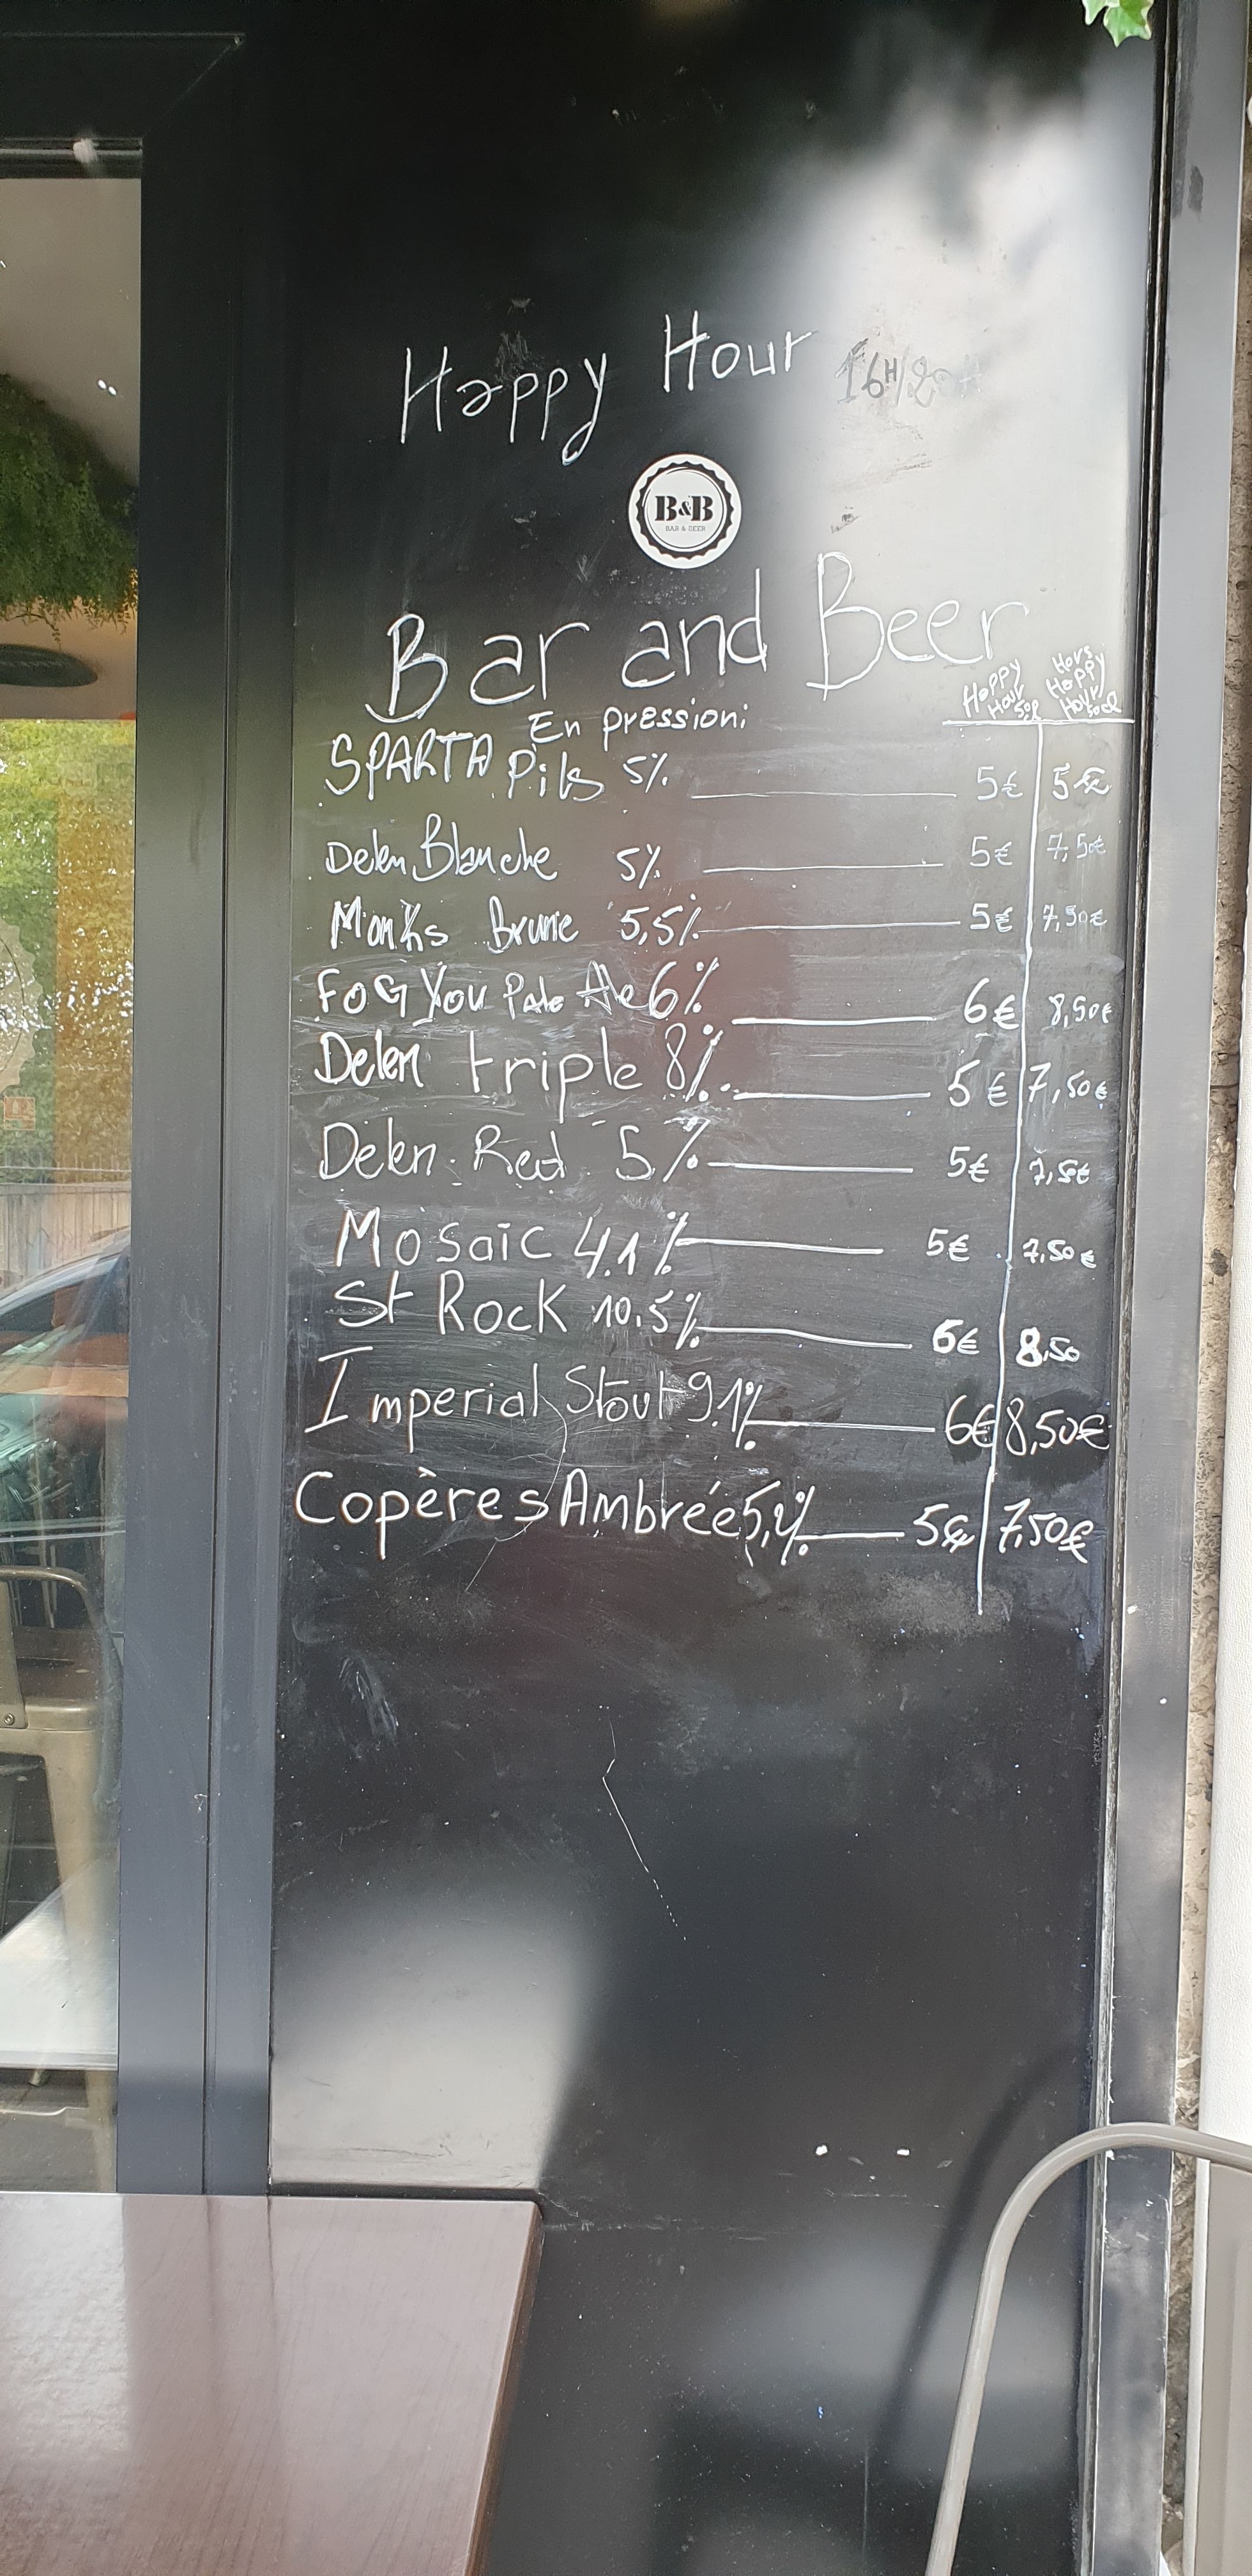 Happy Hour 16H/20H
B&B
BAR & BEER
Bar and Beer
Happy Hour 50cl
Hors Happy Hour 50cl
En pression:
SPARTA Pils 5% 5€ 5€
Delen Blanche 5% 5€ 7,50€
Monks Brune 5,5% 5€ 7,50€
FOG You Pale Ale 6% 6€ 8,50€
Delen triple 8% 5€ 7,50€
Delen Red 5% 5€ 7,5€
Mosaïc 4.1% 5€ 7,50€
St Rock 10.5% 6€ 8,50
Imperial Stout 9.1% 6€ 8,50€
Copères Ambrée 5€ 7,50€